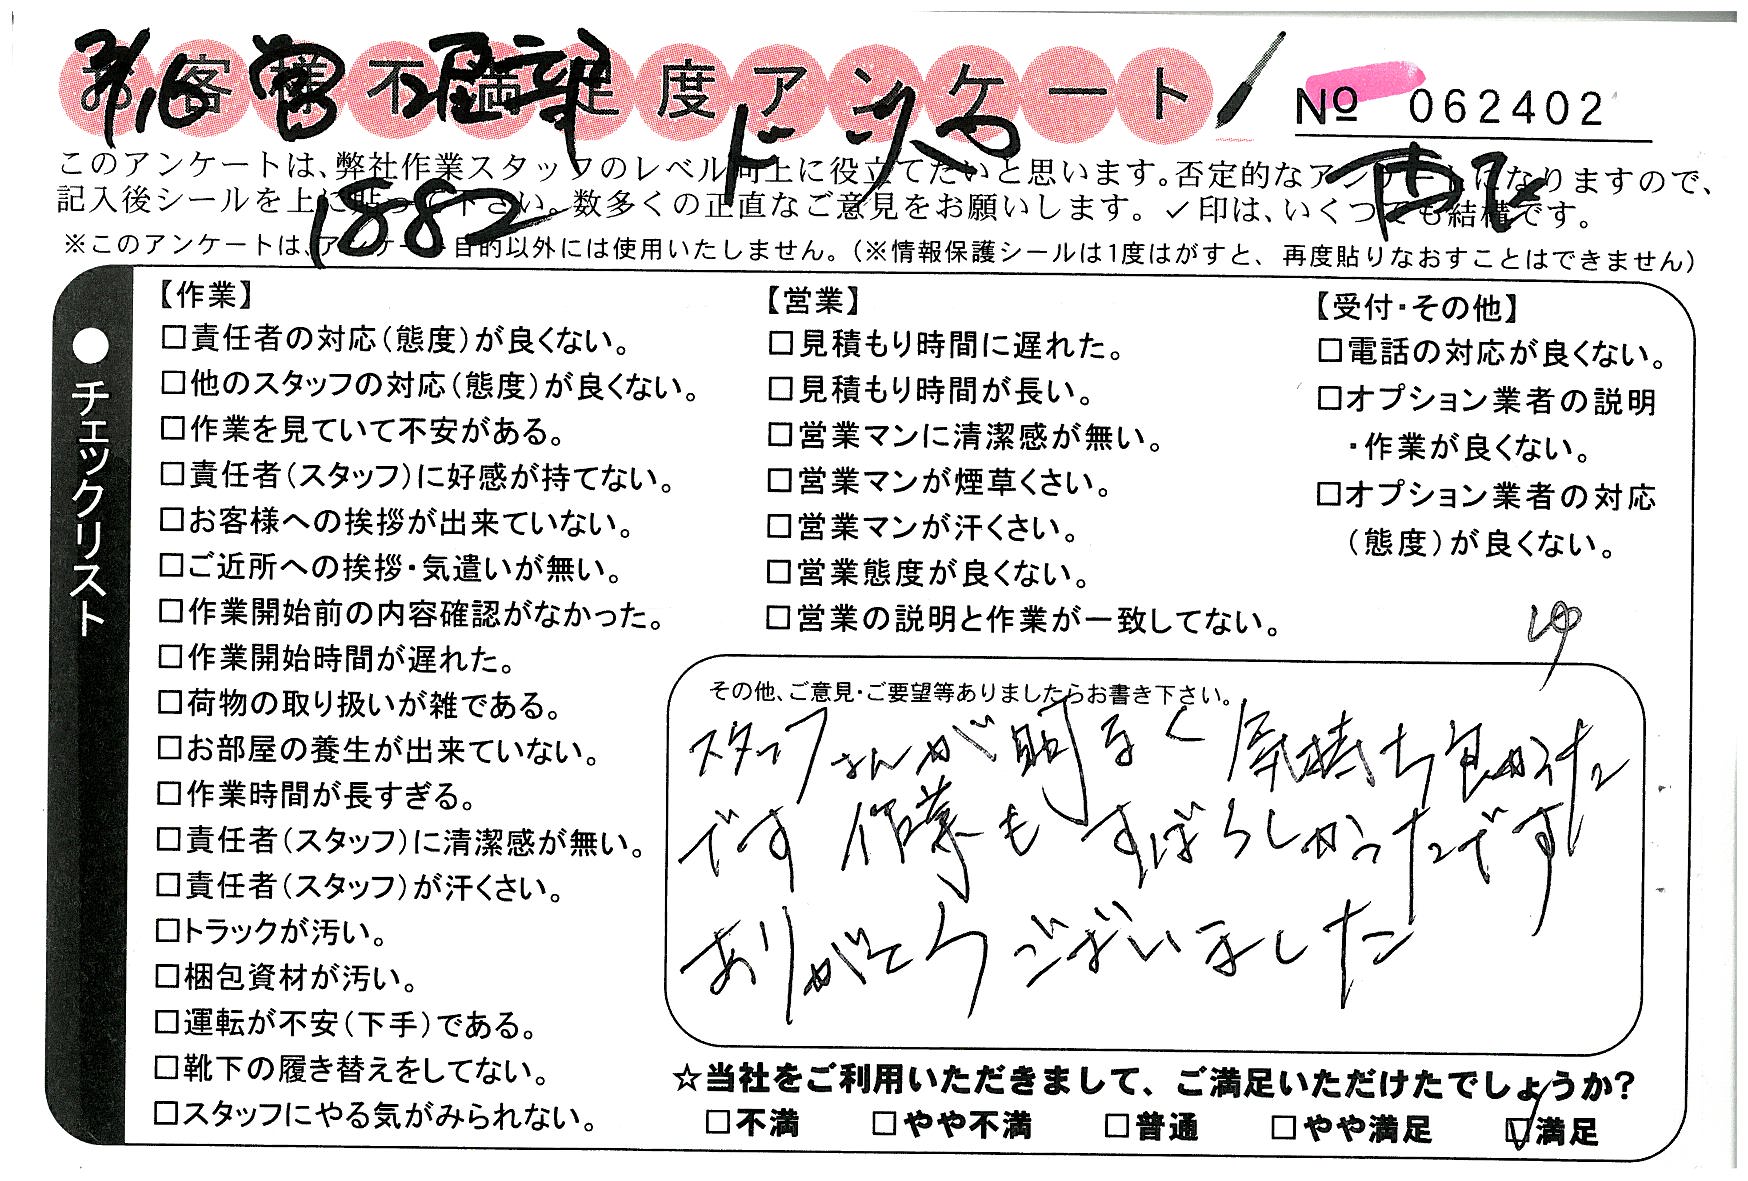 お客様不満足度アンケート
No 062402
3/16 管理部
1882
このアンケートは、弊社作業スタッフのレベル向上に役立てたいと思います。否定的なアンケートになりますので、
記入後シールを上に貼って下さい。数多くの正直なご意見をお願いします。✓印は、いくつでも結構です。
※このアンケートは、アンケート目的以外には使用いたしません。(※情報保護シールは1度はがすと、再度貼りなおすことはできません)
●チェックリスト
【作業】
□責任者の対応(態度)が良くない。
□他のスタッフの対応(態度)が良くない。
□作業を見ていて不安がある。
□責任者(スタッフ)に好感が持てない。
□お客様への挨拶が出来ていない。
□ご近所への挨拶・気遣いが無い。
□作業開始前の内容確認がなかった。
□作業開始時間が遅れた。
□荷物の取り扱いが雑である。
□お部屋の養生が出来ていない。
□作業時間が長すぎる。
□責任者(スタッフ)に清潔感が無い。
□責任者(スタッフ)が汗くさい。
□トラックが汚い。
□梱包資材が汚い。
□運転が不安(下手)である。
□靴下の履き替えをしてない。
□スタッフにやる気がみられない。
【営業】
□見積もり時間に遅れた。
□見積もり時間が長い。
□営業マンに清潔感が無い。
□営業マンが煙草くさい。
□営業マンが汗くさい。
□営業態度が良くない。
□営業の説明と作業が一致してない。
【受付・その他】
□電話の対応が良くない。
□オプション業者の説明
・作業が良くない。
□オプション業者の対応
(態度)が良くない。
その他、ご意見・ご要望等ありましたらお書き下さい。
スタッフさんが明るく気持ち良かった
です 作業もすばらしかったです
ありがとうございました
☆当社をご利用いただきまして、ご満足いただけたでしょうか?
□不満 □やや不満 □普通 □やや満足 ☑満足